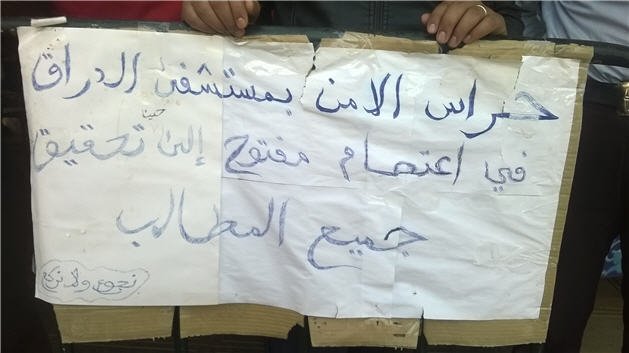 حراس الامن بمستشفى الدراق
في اعتصام مفتوح إلى حين تحقيق
جميع المطالب
نجوع ولا نركع